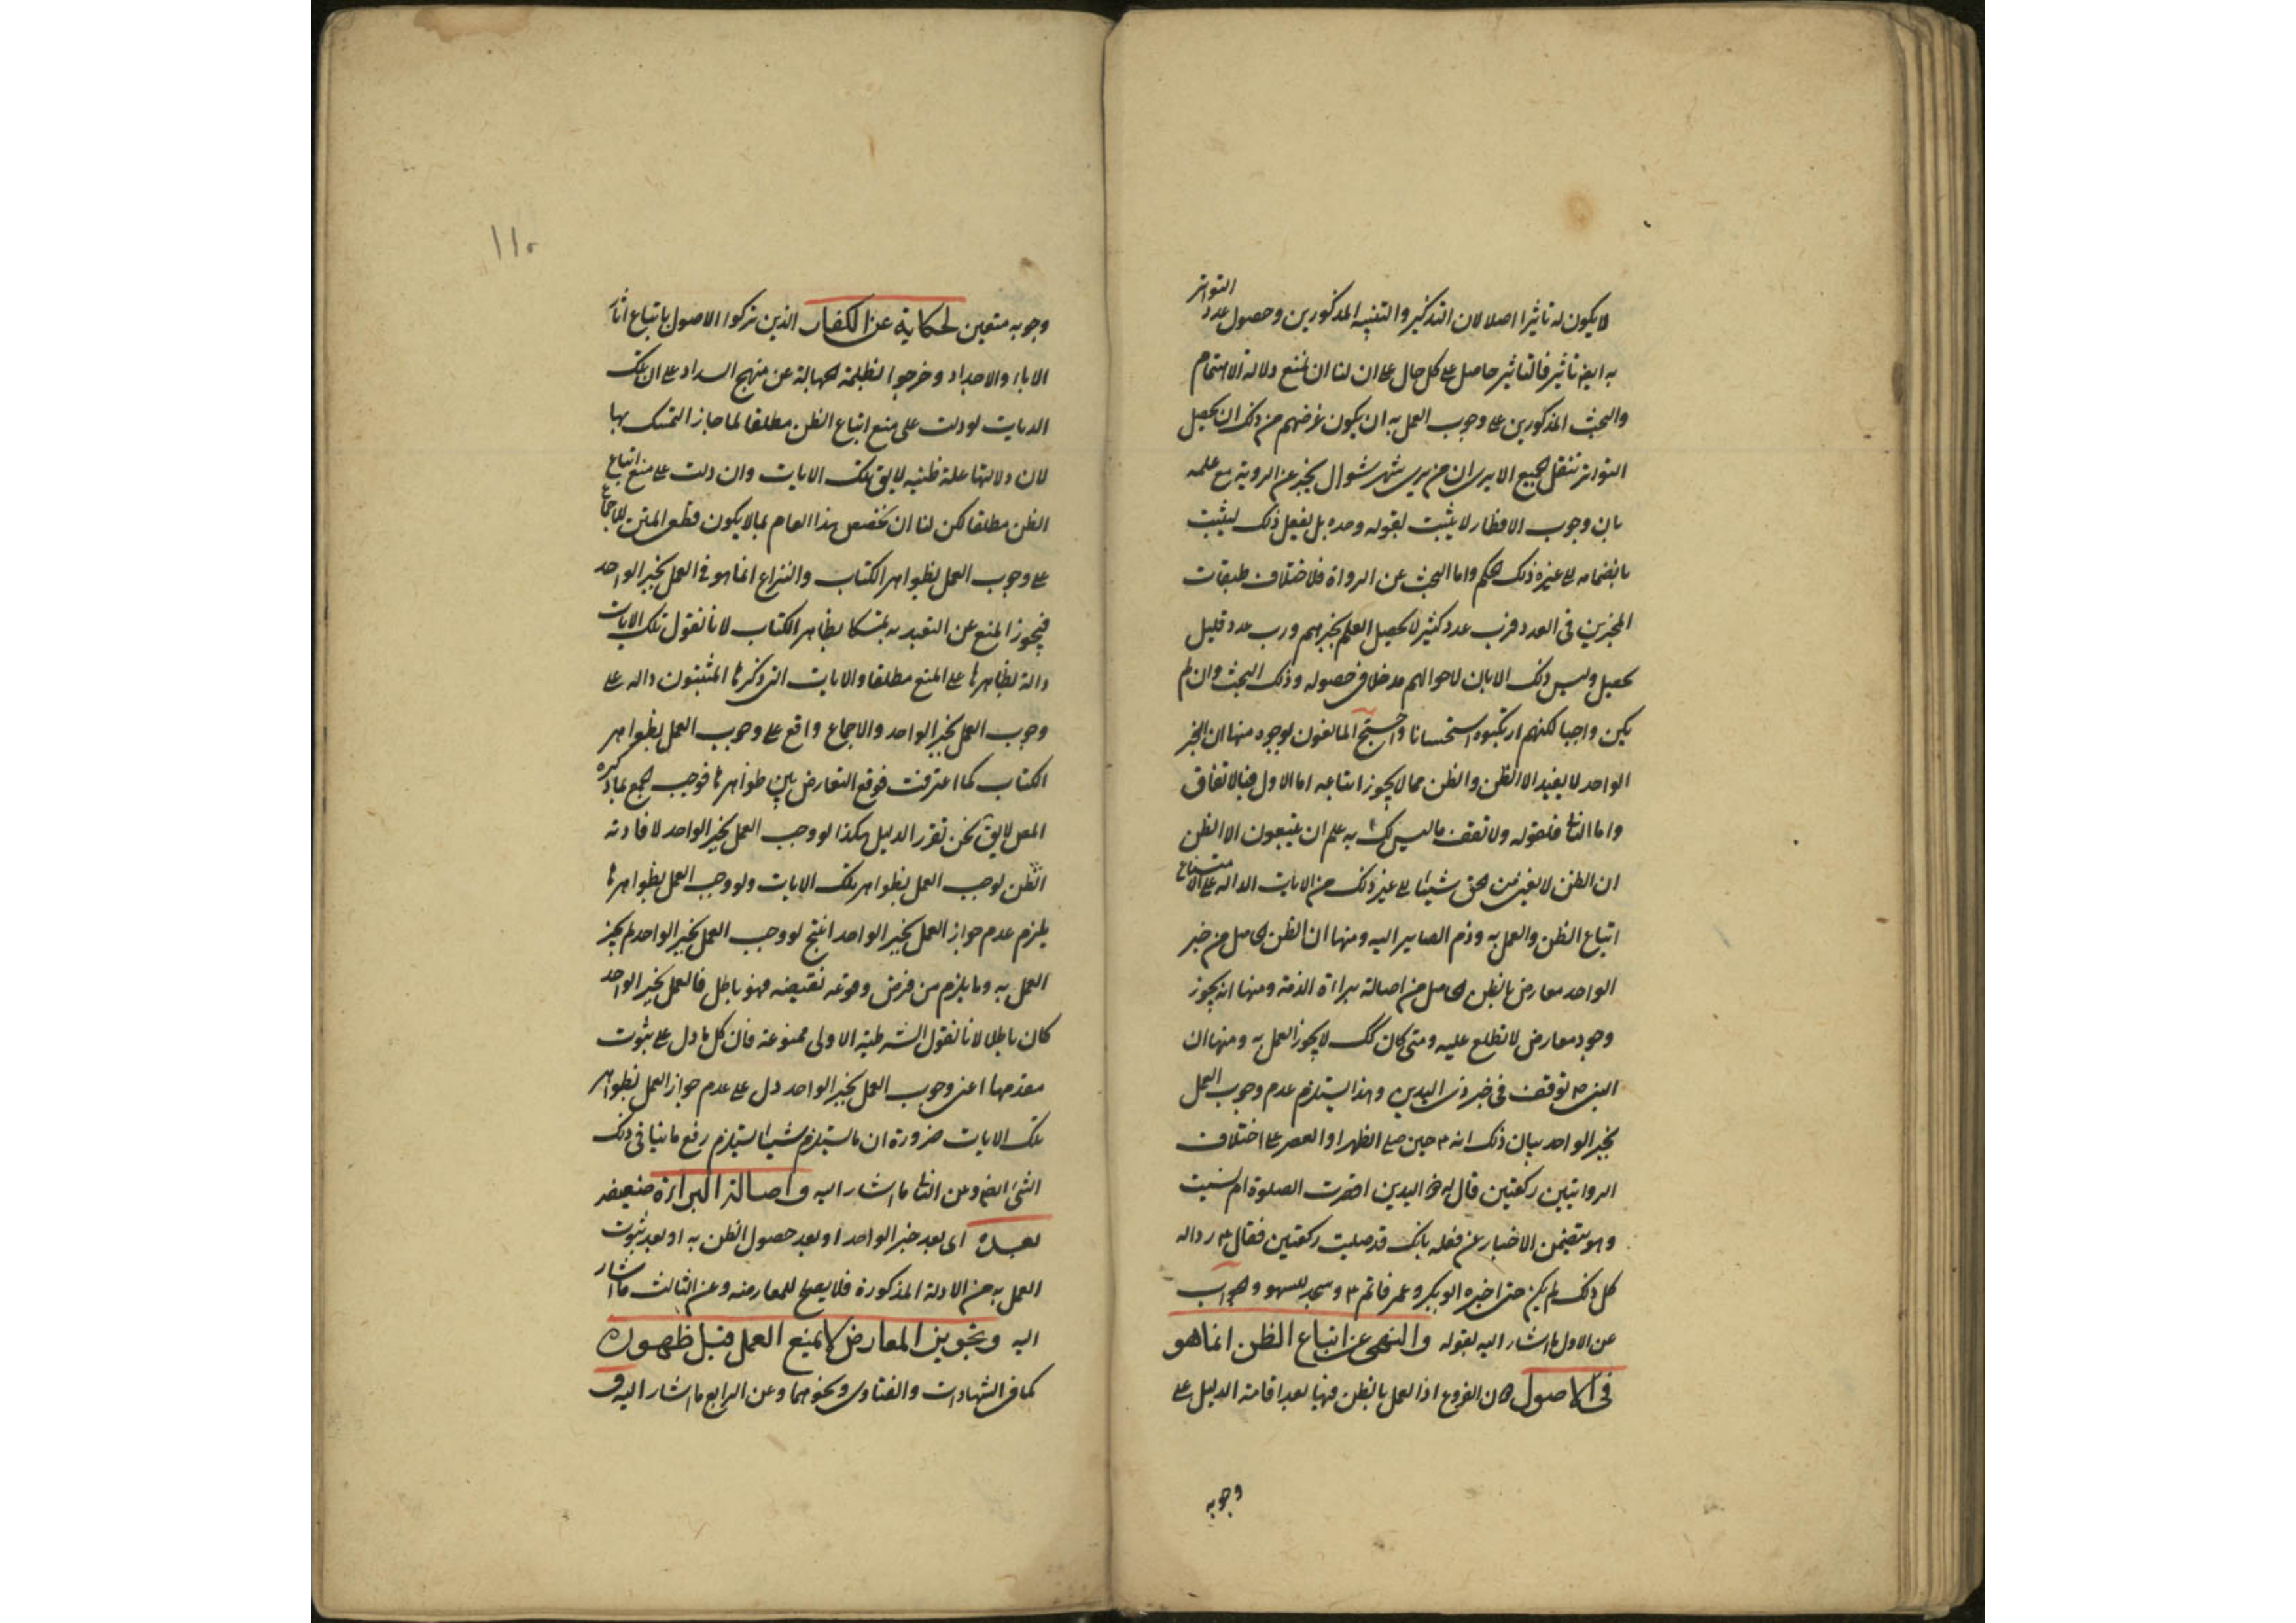 لا يكون له تاثيرا اصلا لان التذكير والتنبيه المذكورين وحصول عدد التواتر
به ايضا تاثير فالتاثير حاصل على كل حال على ان لنا ان نمنع دلالة الاهتمام
والبحث المذكورين على وجوب العمل به ان يكون غرضهم من ذلك ان يحصل
التواتر تنقل الجميع الا يرى ان من يرى شهر شوال يخبر عن الروية مع علمه
بان وجوب الافطار لا يثبت بقوله وحده بل يفعل ذلك ليثبت
بانضمامه الى غيره ذلك الحكم واما البحث عن الرواة فلاختلاف طبقات
المخبرين فى العدد فرب عدد كثير لا يحصل العلم بخبرهم ورب عدد قليل
يحصل وليس ذلك الا بان لاحوالهم مدخلا فى حصوله وذلك البحث وان لم
يكن واجبا لكنهم ارتكبوه استحسانا واحتج المانعون لوجوه منها ان الخبر
الواحد لا يفيد الا الظن والظن مما لا يجوز اتباعه اما الاول فبالاتفاق
واما الثانى فلقوله ولا تقف ما ليس لك به علم ان يتبعون الا الظن
ان الظن لا يغنى من الحق شيئا الى غير ذلك من الايات الداله على امتناع
اتباع الظن والعمل به وذم الصاير اليه ومنها ان الظن الحاصل من خبر
الواحد معارض بالظن الحاصل من اصالة براءة الذمة ومنها انه يجوز
وجود معارض لا نطلع عليه ومتى كان كك لا يجوز العمل به ومنها ان
النبى ص توقف فى خبر ذى اليدين وهذا يستلزم عدم وجوب العمل
بخبر الواحد بيان ذلك انه ع حين صلى الظهر او العصر على اختلاف
الروايتين ركعتين قال له ذو اليدين اقصرت الصلوة ام نسيت
وهو يتضمن الاخبار عن فعله بانك قد صليت ركعتين فقال ع ردا له
كل ذلك لم يكن حتى اخبره ابو بكر وعمر فاتم ع وسجد للسهو والجواب
عن الاول ما اشار اليه بقوله والنهى عن اتباع الظن انما هو
فى الاصول دون الفروع اذ العمل بالظن فيها بعد اقامة الدليل على
وجوبه
١١٠
وجوبه متعين لحكاية عن الكفار الذين تركوا الاصول باتباع اثار
الاباء والاجداد وخرجوا لظلمة الجهالة عن منهج السداد على ان تلك
الايات لو دلت على منع اتباع الظن مطلقا لما جاز التمسك بها
لان دلالتها عليه ظنيه لا يق تلك الايات وان دلت على منع اتباع
الظن مطلقا لكن لنا ان نخصص هذا العام بما لا يكون قطعى المتن للاجماع
على وجوب العمل بظواهر الكتاب والنزاع انما هو فى العمل بخبر الواحد
فيجوز المنع عن التعبد به تمسكا بظاهر الكتاب لانا نقول تلك الايات
دالة بظاهرها على المنع مطلقا والايات التى ذكرها المثبتون داله على
وجوب العمل بخبر الواحد والاجماع واقع على وجوب العمل بظواهر
الكتاب كما اعترفت فوقع التعارض بين ظواهرها فوجب الجمع بما ذكره
المص لا يق نحن نقرر الدليل هكذا لو وجب العمل بخبر الواحد لافادته
الظن لوجب العمل بظواهر تلك الايات ولو وجب العمل بظواهرها
يلزم عدم جواز العمل بخبر الواحد انتج لو وجب العمل بخبر الواحد لم يجز
العمل به وما يلزم من فرض وقوعه نقيضه فهو باطل فالعمل بخبر الواحد
كان باطلا لانا نقول الشرطية الاولى ممنوعة فان كل ما دل على ثبوت
مقدمها اعنى وجوب العمل بخبر الواحد دل على عدم جواز العمل بظواهر
تلك الايات ضرورة ان ما يستلزم شيئا يستلزم رفع ما ينافى ذلك
الشئ ايضا وعن الثانى ما اشار اليه واصالة البراءة ضعيفه
بعده اى بعد خبر الواحد او بعد حصول الظن به او بعد ثبوت
العمل به من الادلة المذكورة فلا يصلح للمعارضه وعن الثالث ما اشار
اليه وتجويز المعارض لا يمنع العمل قبل ظهوره
كما فى الشهادات والفتاوى ونحوهما وعن الرابع ما اشار اليه و